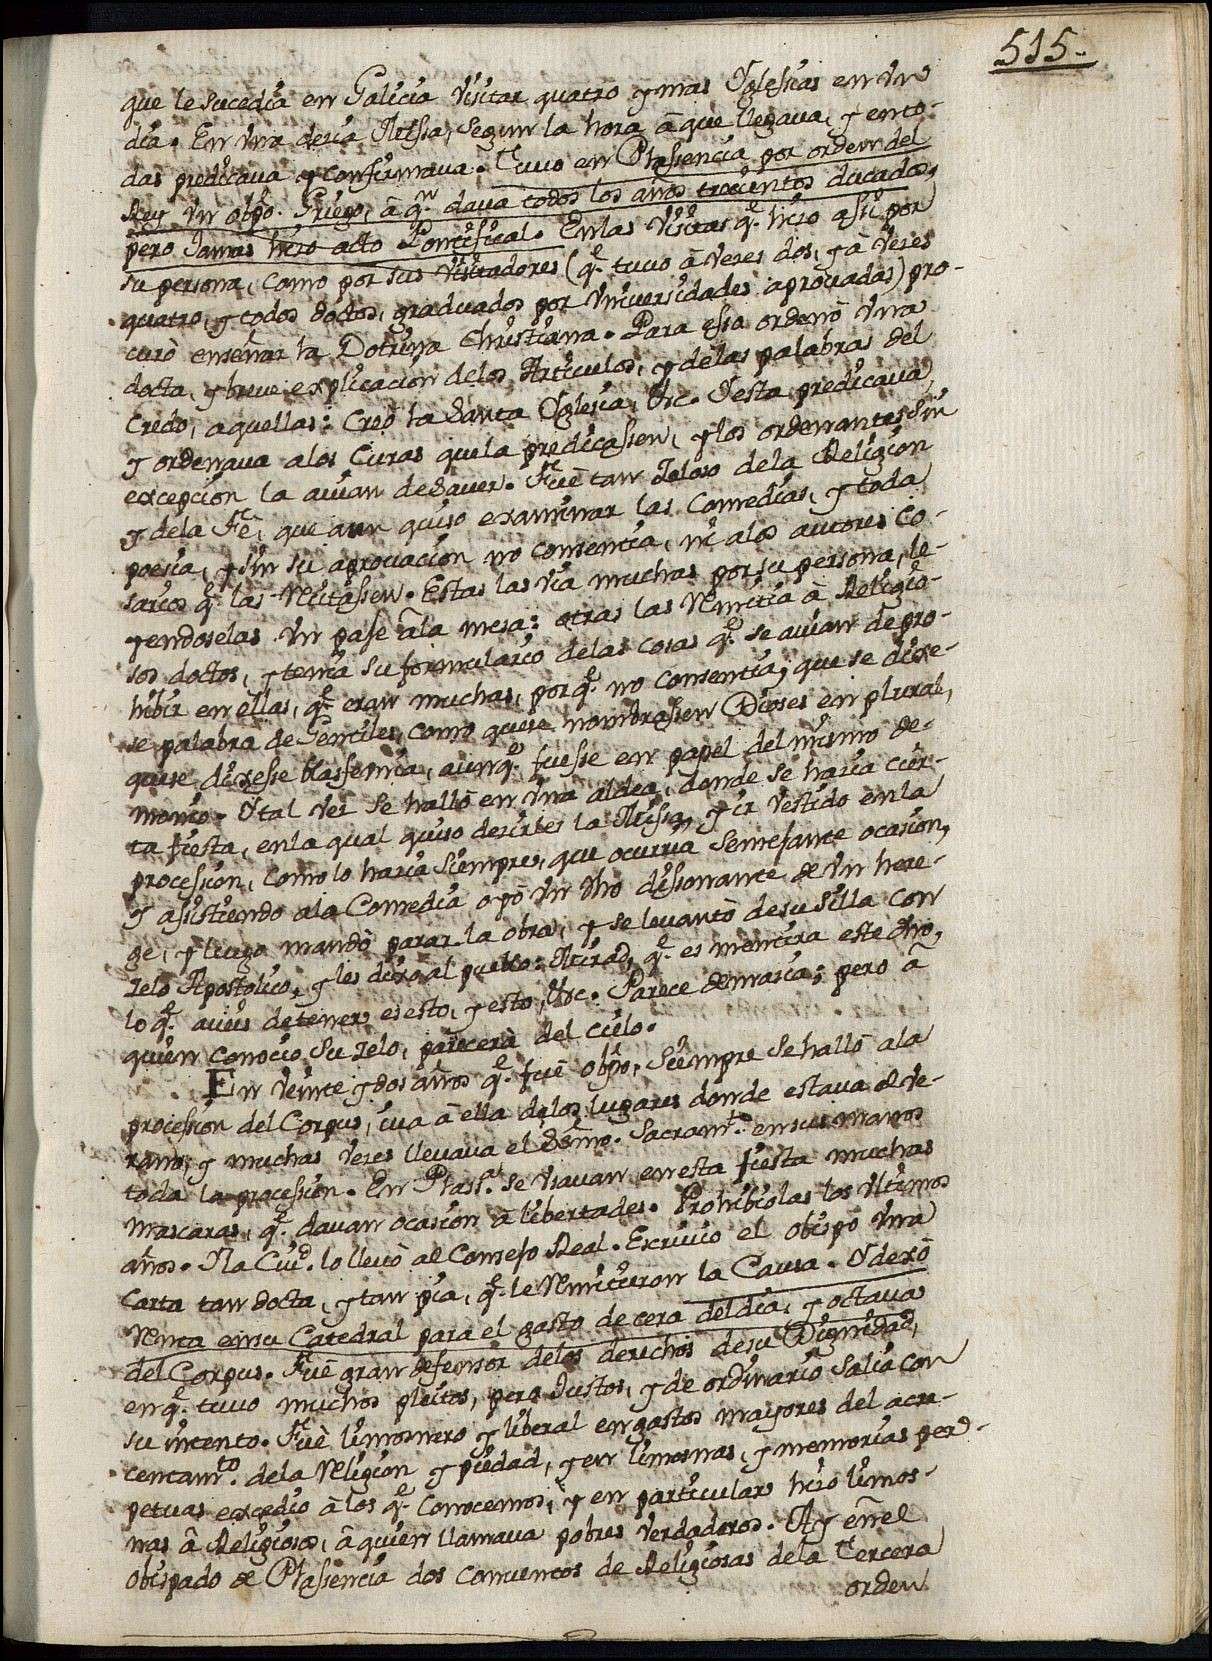 515.
que le sucedia en Galicia visitar quatro y mas Yglesias en vn
dia. En vna decia Missa, segun la hora â que llegava, y en to-
das predicava y confirmava. Tuvo en Plassencia por orden del
Rey vn obpo. Griego, â qn. dava todos los años trecientos ducados,
pero Jamas hizo acto Pontifical. En las visitas qe. hizo assi por
su persona, como por sus visitadores (qe. tuvo â vezes dos, y â vezes
quatro, y todos doctos, graduados por vniversidades aprovadas) pro-
curò enseñar la Dotrina Christiana. Para esso ordenò vna
docta, y breve explicacion de los Articulos, y de las palabras del
Credo, aquellas: Creo la Santa Yglesia, &c. Y esta predicava,
y ordenava a los Curas que la predicassen, y los ordenantes sin
excepcion la avian de saver. Fuè tan zeloso de la Religion
y de la Fè, que aun quiso examinar las Comedias, y toda
poesia, y sin su aprovacion no consentia, ni a los autores co-
sarios qe. las recitassen. Estas las via muchas por su persona, le-
yendoselas vn paje âla mesa: otras las remitia â Religio-
sos doctos, y tenia su formulario de las cosas qe. se avian de pro-
hibir en ellas, qe. eran muchas, porqe. no consentia, que se dixe-
se palabra de Gentiles, como que se nombrassen Dioses en plural,
que se dixesse blasfemia, aunqe. fuesse en papel del mismo de-
monio. Y tal vez se hallò en vna aldea, donde se hazia cier-
ta fiesta, en la qual quiso decirles la Missa, y ir vestido en la
procession, como lo hazia siempre, que ocurria semejante ocasion,
y assistiendo a la Comedia oyò vn dho dissonante de vn here-
ge, y luego mandò parar la obra, y se levantò de su silla con
zelo Apostolico, y les dixo al pueblo: Mirad, qe. es mentira este dho,
lo qe. aveis de tener es esto, y esto, &c. Parece demasia; pero â
quien conociò su zelo, parecerà del cielo.
En veinte y dos años qe. fuè obpo, siempre se hallò a la
procession del Corpus, iva â ella de los lugares donde estava el ve-
rano, y muchas vezes llevava el SSmo. Sacramto. en sus manos
toda la procession. En Plassa. se vsavan en esta fiesta muchas
mascaras, qe. davan ocasion â libertades. Prohibiolas los vltimos
años. Y la Ciud. lo llevò al Consejo Real. Escrivio el obispo vna
carta tan docta, y tan pia, qe. le remitieron la Causa. Y dexò
renta en su Catedral para el gasto de cera del dia, y octava
del Corpus. Fuè gran defensor de los derechos de su Dignidad,
en qe. tuvo muchos pleitos, pero Justos, y de ordinario salia con
su intento. Fuè limosnero y liberal en gastos mayores del acre-
centamto. de la religion y piedad, y en limosnas, y memorias per-
petuas excediò â los qe. conocemos, y en particular hizo limos-
nas â Religiosos, â quien llamava pobres verdaderos. Ay en el
obispado de Plassencia dos conventos de Religiosas de la Tercera
orden